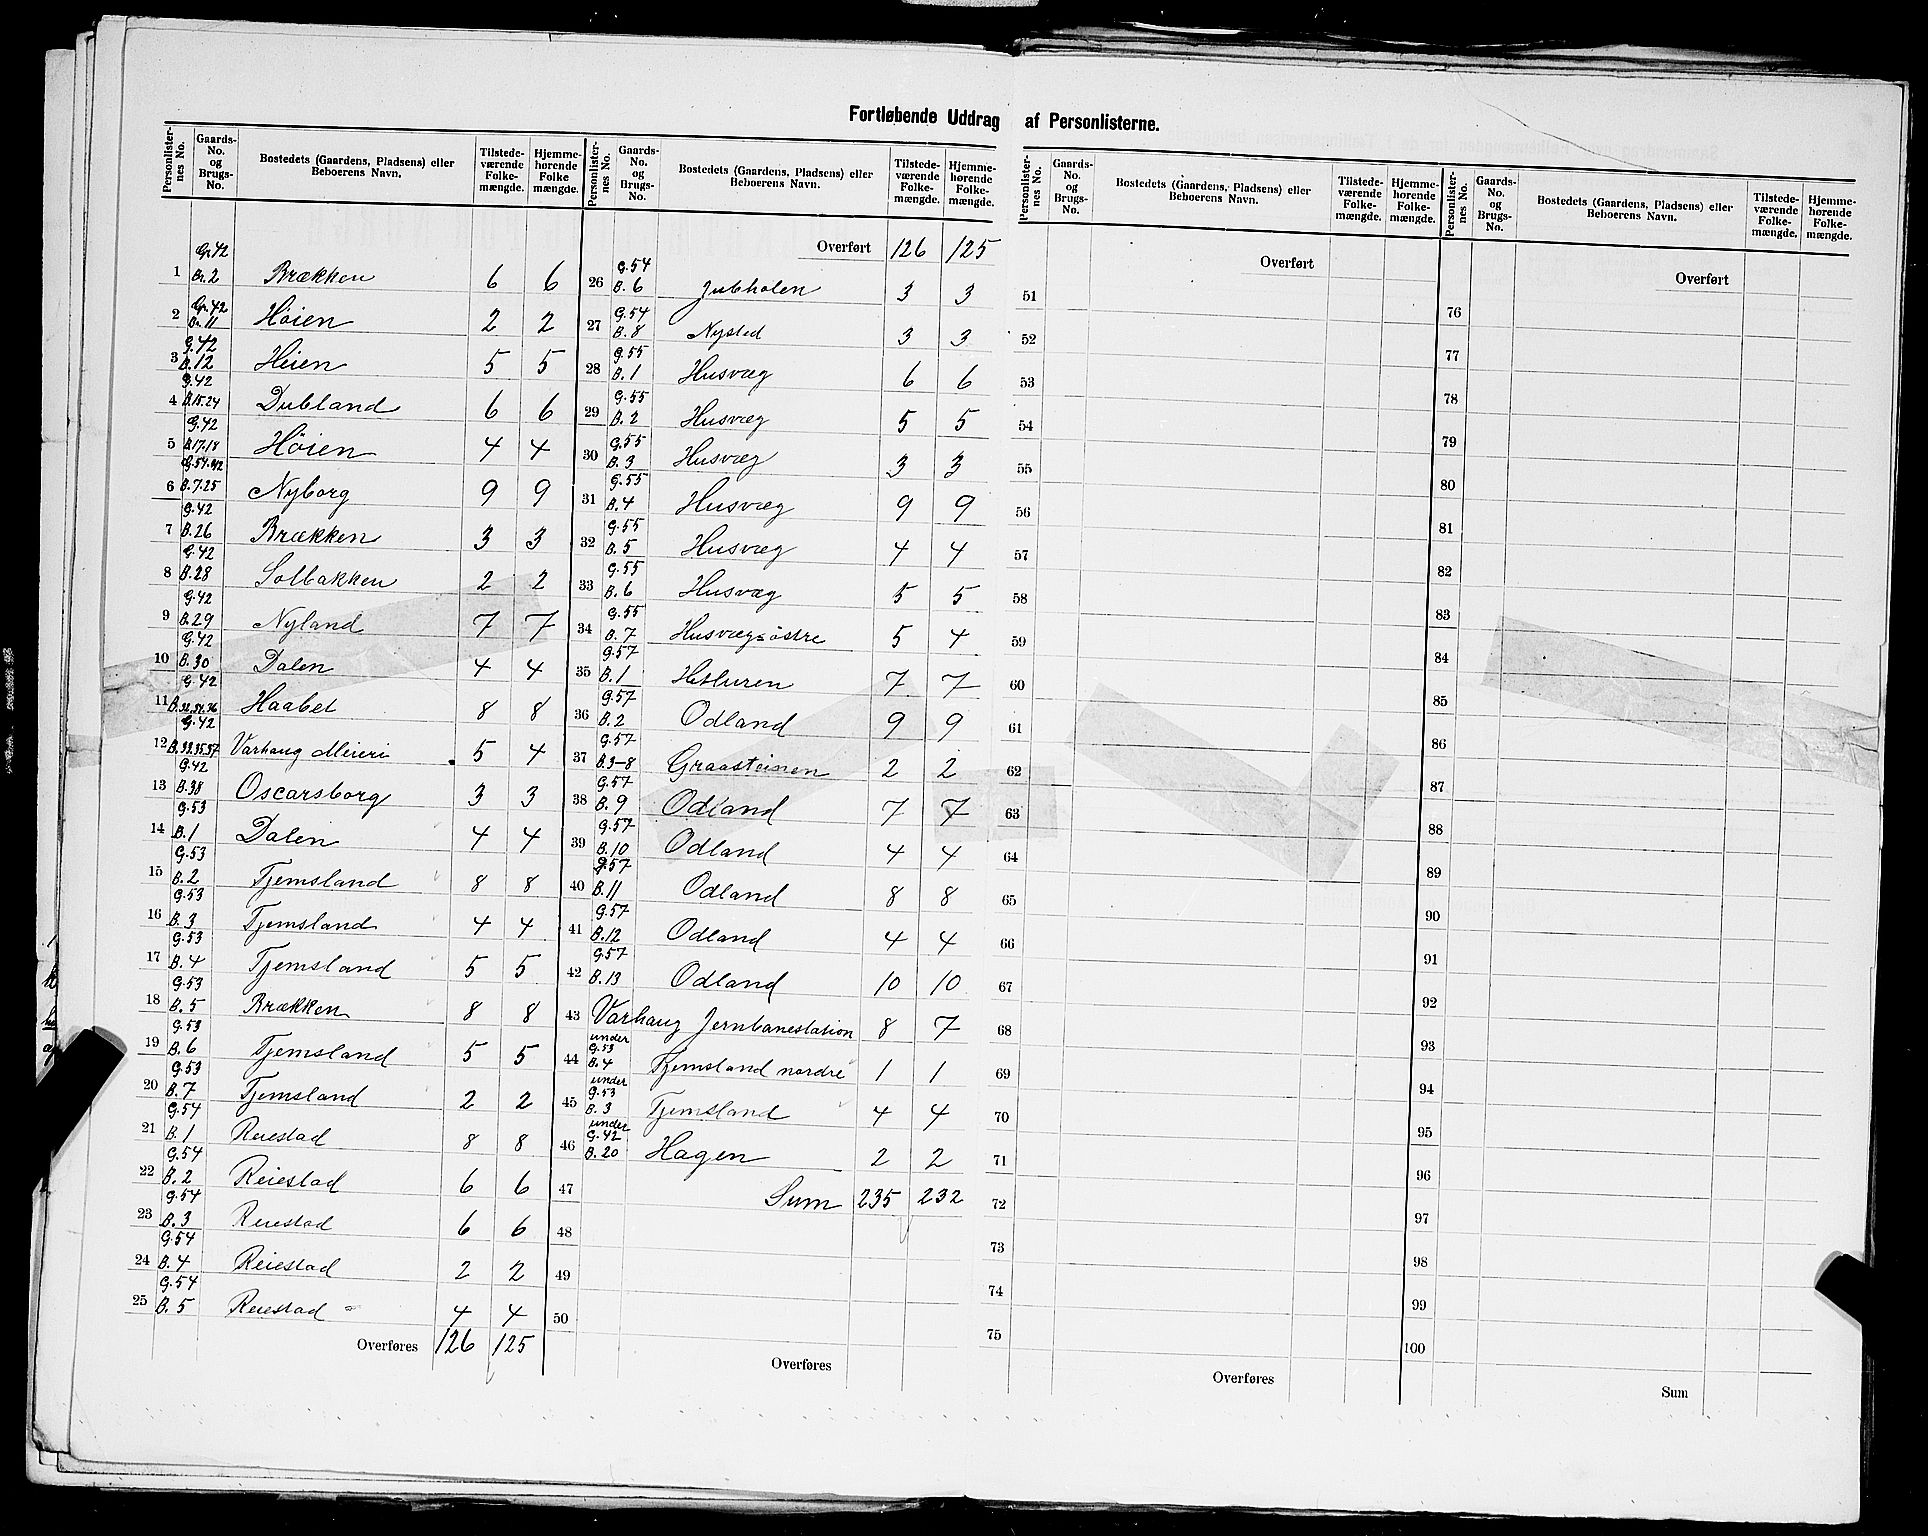 Fortløbende Uddrag af Personlisterne.
Personlister-nes No. | Gaards-No. og Brugs-No. | Bostedets (Gaardens, Pladsens) eller Beboerens Navn. | Tilstede-værende Folke-mængde. | Hjemme-hørende Folke mængde.
1 | Gr. 42 Br. 2 | Brækken | 6 | 6
2 | Gr. 42 Br. 11 | Höien | 2 | 2
3 | G. 42 B. 12 | Heien | 5 | 5
4 | G. 42 B. 15.24 | Dubland | 6 | 6
5 | G. 42 B. 17.18 | Höien | 4 | 4
6 | G. 54.42 B. 7.25 | Nyborg | 9 | 9
7 | G. 42 B. 26 | Brækken | 3 | 3
8 | G. 42 B. 28 | Solbakken | 2 | 2
9 | G. 42 B. 29 | Nyland | 7 | 7
10 | G. 42 B. 30 | Dalen | 4 | 4
11 | G. 42 B. 32.34.36 | Haabet | 8 | 8
12 | G. 42 B. 33.35.37 | Varhaug Meieri | 5 | 4
13 | G. 42 B. 38 | Oscarsborg | 3 | 3
14 | G. 53 B. 1 | Dalen | 4 | 4
15 | G. 53 B. 2 | Tjemsland | 8 | 8
16 | G. 53 B. 3 | Tjemsland | 4 | 4
17 | G. 53 B. 4 | Tjemsland | 5 | 5
18 | G. 53 B. 5 | Brækken | 8 | 8
19 | G. 53 B. 6 | Tjemsland | 5 | 5
20 | G. 53 B. 7 | Tjemsland | 2 | 2
21 | G. 54 B. 1 | Reiestad | 8 | 8
22 | G. 54 B. 2 | Reiestad | 6 | 6
23 | G. 54 B. 3 | Reiestad | 6 | 6
24 | G. 54 B. 4 | Reiestad | 2 | 2
25 | G. 54 B. 5 | Reiestad | 4 | 4
Overføres | 126 | 125
Personlister-nes No. | Gaards-No. og Brugs-No. | Bostedets (Gaardens, Pladsens) eller Beboerens Navn. | Tilstede-værende Folke-mængde. | Hjemme-hørende Folke-mængde.
Overført | 126 | 125
26 | G. 54 B. 6 | Jubholen | 3 | 3
27 | G. 54 B. 8 | Nysted | 3 | 3
28 | G. 55 B. 1 | Husvæg | 6 | 6
29 | G. 55 B. 2 | Husvæg | 5 | 5
30 | G. 55 B. 3 | Husvæg | 3 | 3
31 | G. 55 B. 4 | Husvæg | 9 | 9
32 | G. 55 B. 5 | Husvæg | 4 | 4
33 | G. 55 B. 6 | Husvæg | 5 | 5
34 | G. 55 B. 7 | Husvæg östre | 5 | 4
35 | G. 57 B. 1 | 7 | 7
36 | G. 57 B. 2 | Odland | 9 | 9
37 | G. 57 B. 3-8 | Graasteinen | 2 | 2
38 | G. 57 B. 9 | Odland | 7 | 7
39 | G. 57 B. 10 | Odland | 4 | 4
40 | G. 57 B. 11 | Odland | 8 | 8
41 | G. 57 B. 12 | Odland | 4 | 4
42 | G. 57 B. 13 | Odland | 10 | 10
43 | Varhaug Jernbanestation | 8 | 7
44 | under G. 53 B. 4 | Tjemsland nordre | 1 | 1
45 | under G. 53 B. 3 | Tjemsland | 4 | 4
46 | under G. 42 B. 20 | Hagen | 2 | 2
47 | Sum | 235 | 232
48
49
50
Overføres
Personlister-nes No. | Gaards-No. og Brugs-No. | Bostedets (Gaardens, Pladsens) eller Beboerens Navn. | Tilstede-værende Folke-mængde. | Hjemme-hørende Folke-mængde.
Overført
51
52
53
54
55
56
57
58
59
60
61
62
63
64
65
66
67
68
69
70
71
72
73
74
75
Overføres
Personlister-nes No. | Gaards-No. og Brugs-No. | Bostedets (Gaardens, Pladsens) eller Beboerens Navn. | Tilstede-værende Folke-mængde. | Hjemme-hørende Folke-mængde.
Overført
76
77
78
79
80
81
82
83
84
85
86
87
88
89
90
91
92
93
94
95
96
97
98
99
100
Sum